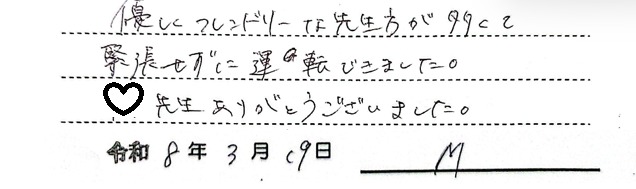 優しくフレンドリーな先生方が多くて
緊張せずに運転できました。
♡先生ありがとうございました。
令和8年3月19日 M